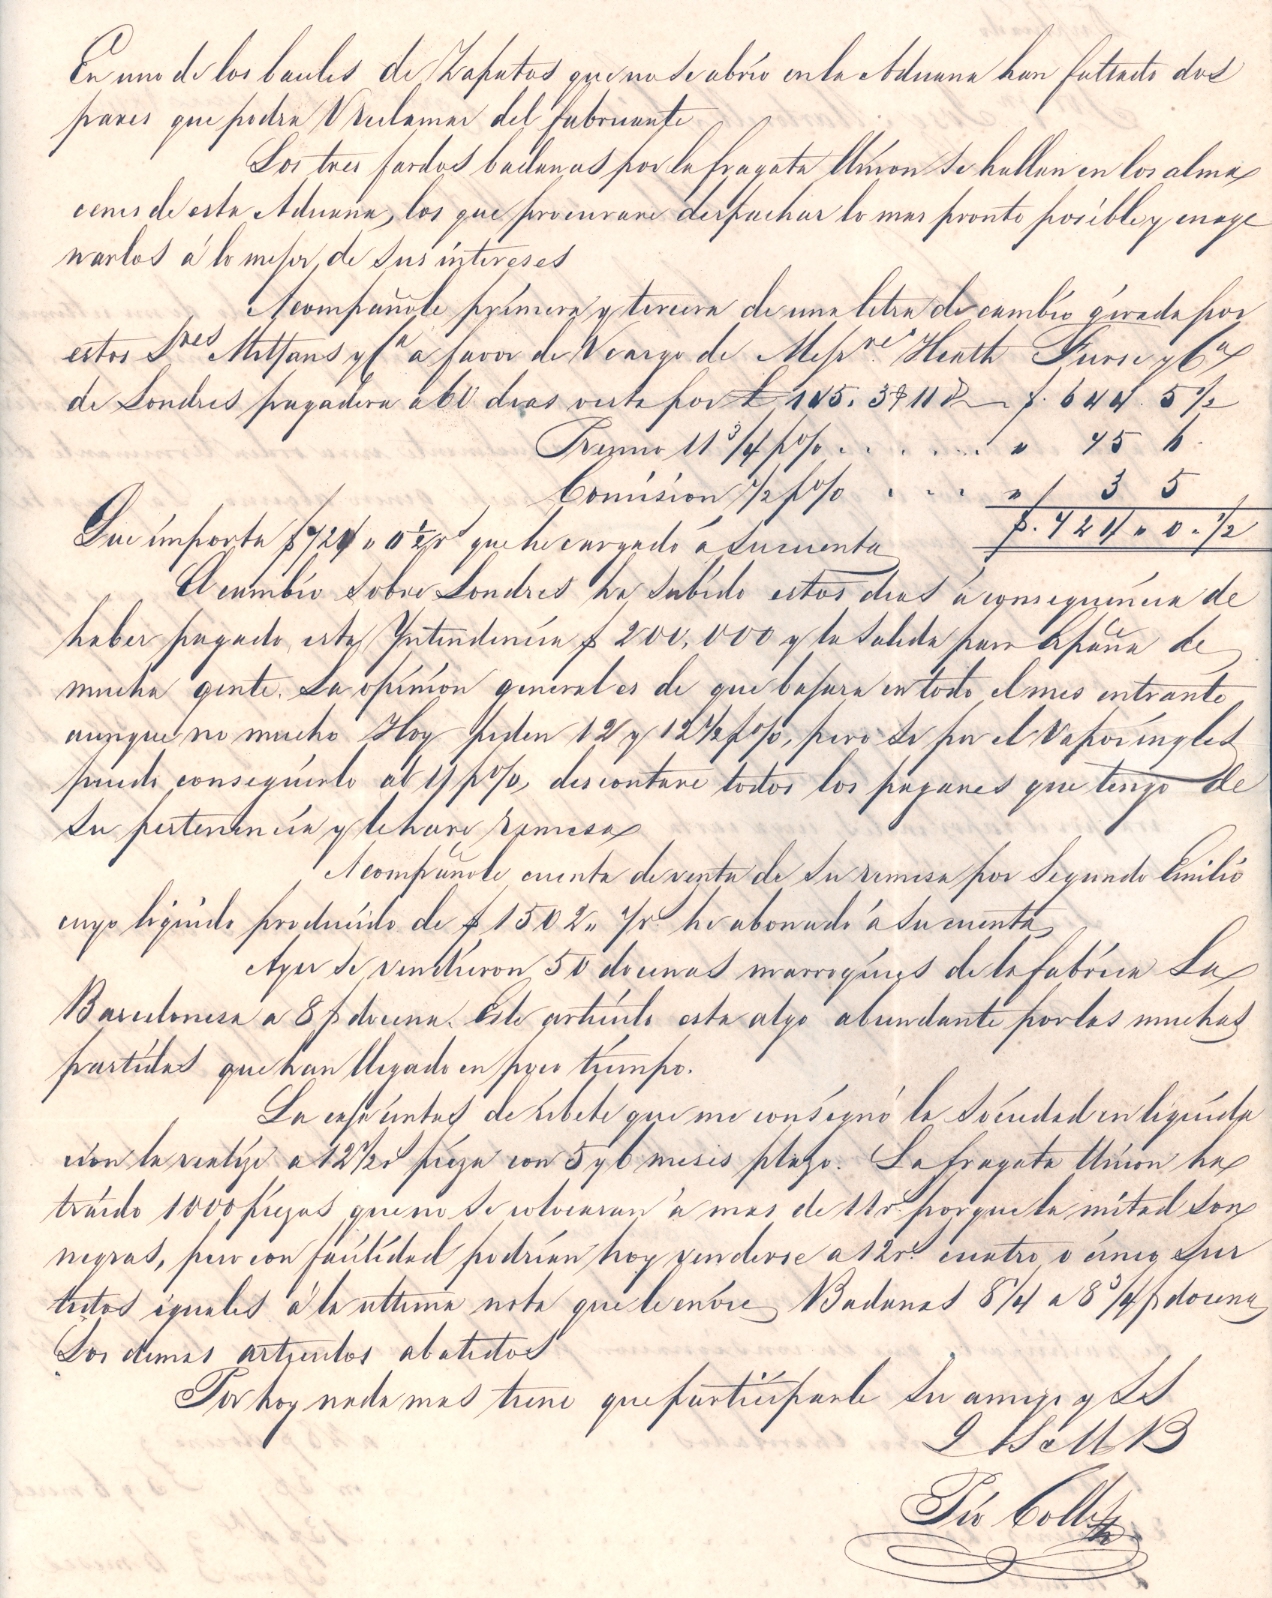 En uno de los baules de Zapatos que no se abrio en la Aduana han faltado dos
pares que podra V reclamar del fabricante
Los tres fardos badanas por la fragata Union se hallan en los alma
cenes de esta Aduana, los que procurare despachar lo mas pronto posible y enage
narlos á lo mejor de sus intereses
Acompañole primera y tercera de una letra de cambio girada por
estos Sres Mitjans y Ca a favor de V cargo de Messrs Heath Furse y Ca
de Londres pagadera a 60 dias vista por £ 145. 3 11 $. 644. 5 1/2
Premio 11 3/4 p% . . . . . . " 75 6.
Comision 1/2 p% . . . " 3 5
Que importa $ 724 " 0 1/2 rs que he cargado á su cuenta $. 724 " 0. 1/2
El cambio sobre Londres ha subido estos dias á consequencia de
haber pagado esta Yntendencia $ 200.000 y la salida para España de
mucha gente. La opinion general es de que bajara en todo el mes entrante
aunque no mucho Hoy piden 12 y 12 1/2 p%, pero si por el Vapor ingles
puedo conseguirlo al 11 p%, descontare todos los pagares que tengo de
su pertenencia y le hare remesa
Acompañole cuenta de venta de su remesa por Segundo Emilio
cuyo liquido producido de $ 1502 " he abonado á su cuenta
Ayer se vendieron 50 docenas marroquies de la fabrica La
Barcelonesa a 8 $ docena. Este articulo esta algo abundante por las muchas
partidas que han llegado en poco tiempo.
La caja cintas de ribete que me consignó la Sociedad en liquida
cion la realize a 12 1/2 rs pieza con 5 y 6 meses plazo. La fragata Union ha
traido 1000 piezas que no se colocaran á mas de 11 rs porque la mitad son
negras, pero con facilidad podrian hoy venderse a 12 rs cuatro o cinco sur
tidos iguales á la ultima nota que le envie Badanas 8 1/4 a 8 3/4 $ docena
Los demas articulos abatidos
Por hoy nada mas tiene que participarle su amigo y SS
Q B S M B
Pio